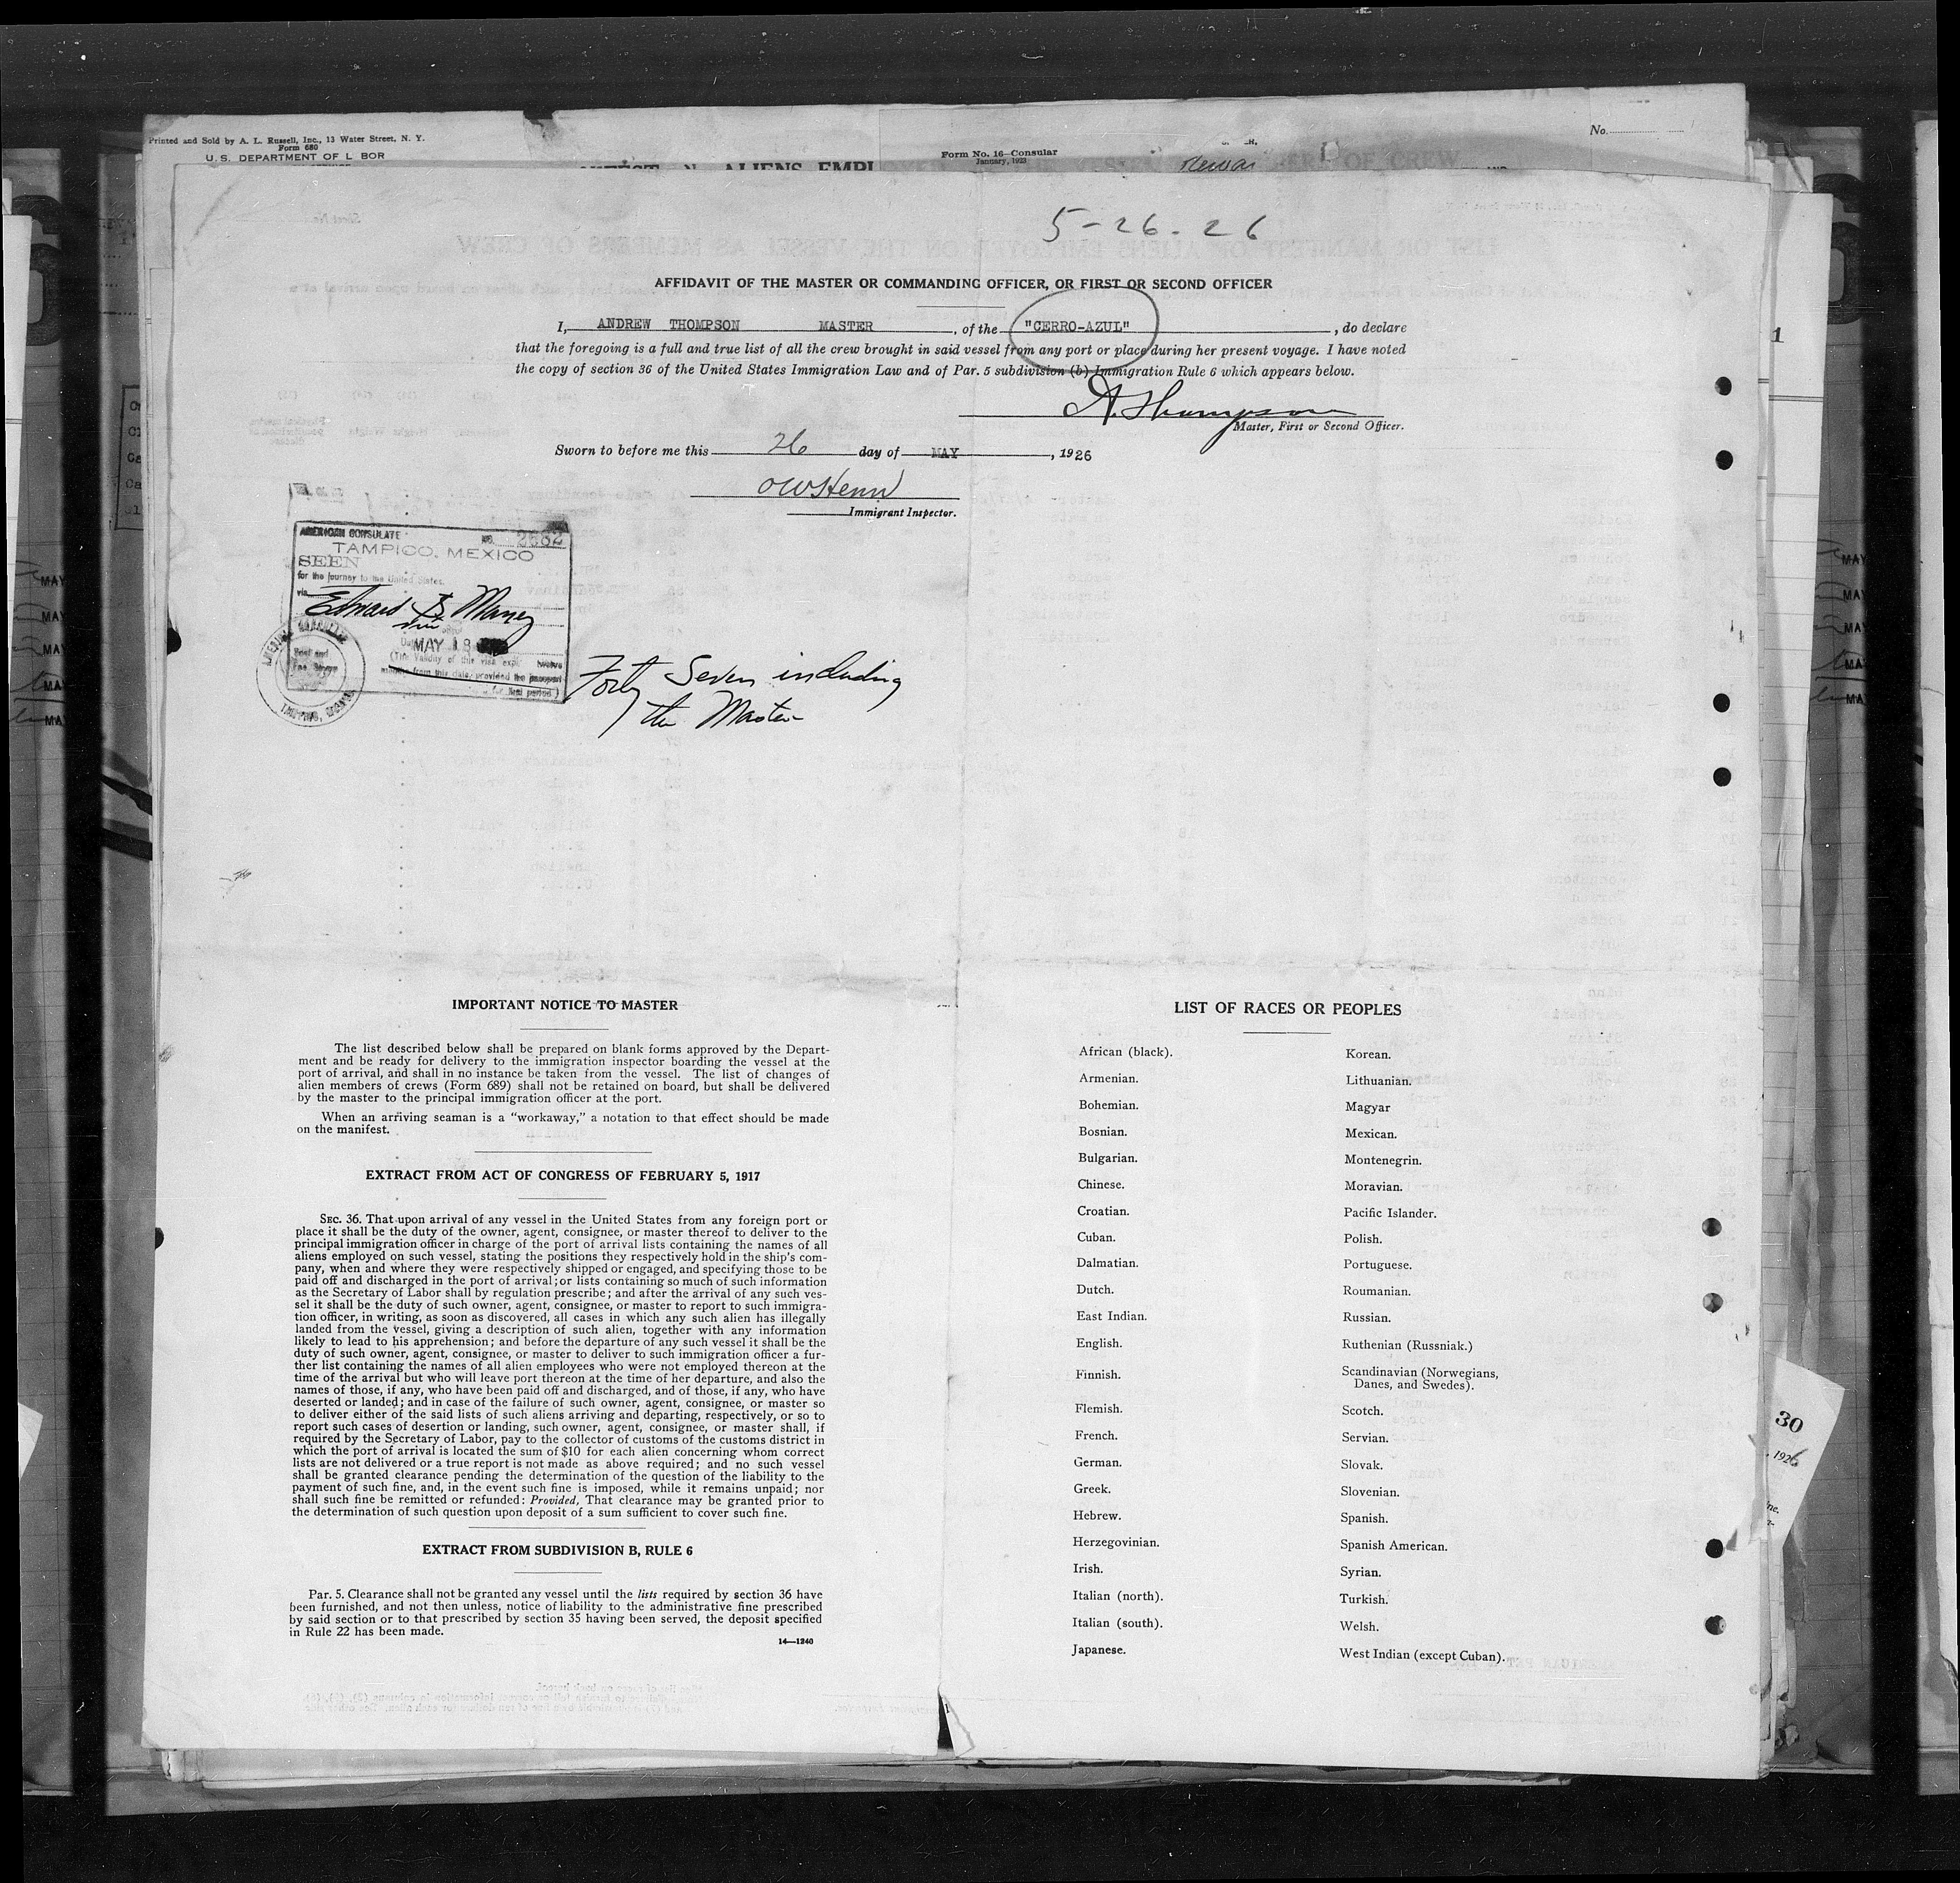 Printed and Sold by A. L. Russell, Inc., 13 Water Street, N. Y.
Form 680
U.S. DEPARTMENT OF L BOR
Form No. 16—Consular
January, 1923
No.
5-26-26
AFFIDAVIT OF THE MASTER OR COMMANDING OFFICER, OR FIRST OR SECOND OFFICER
I, ANDREW THOMPSON MASTER, of the "CERRO-AZUL", do declare
that the foregoing is a full and true list of all the crew brought in said vessel from any port or place during her present voyage. I have noted
the copy of section 36 of the United States Immigration Law and of Par. 5 subdivision (b) Immigration Rule 6 which appears below.
A. Thompson
Master, First or Second Officer.
Sworn to before me this 26 day of MAY, 1926
Immigrant Inspector.
AMERICAN CONSULATE NO. 2662
TAMPICO, MEXICO
SEEN
for the journey to the United States.
via
Edward B Maney
MAY 18
(The Validity of this visa expires twelve
months from this date, provided the passport
for that period)
Forty Seven including
the Master
IMPORTANT NOTICE TO MASTER
The list described below shall be prepared on blank forms approved by the Depart-
ment and be ready for delivery to the immigration inspector boarding the vessel at the
port of arrival, and shall in no instance be taken from the vessel. The list of changes of
alien members of crews (Form 689) shall not be retained on board, but shall be delivered
by the master to the principal immigration officer at the port.
When an arriving seaman is a "workaway," a notation to that effect should be made
on the manifest.
EXTRACT FROM ACT OF CONGRESS OF FEBRUARY 5, 1917
SEC. 36. That upon arrival of any vessel in the United States from any foreign port or
place it shall be the duty of the owner, agent, consignee, or master thereof to deliver to the
principal immigration officer in charge of the port of arrival lists containing the names of all
aliens employed on such vessel, stating the positions they respectively hold in the ship's com-
pany, when and where they were respectively shipped or engaged, and specifying those to be
paid off and discharged in the port of arrival; or lists containing so much of such information
as the Secretary of Labor shall by regulation prescribe; and after the arrival of any such ves-
sel it shall be the duty of such owner, agent, consignee, or master to report to such immigra-
tion officer, in writing, as soon as discovered, all cases in which any such alien has illegally
landed from the vessel, giving a description of such alien, together with any information
likely to lead to his apprehension; and before the departure of any such vessel it shall be the
duty of such owner, agent, consignee, or master to deliver to such immigration officer a fur-
ther list containing the names of all alien employees who were not employed thereon at the
time of the arrival but who will leave port thereon at the time of her departure, and also the
names of those, if any, who have been paid off and discharged, and of those, if any, who have
deserted or landed; and in case of the failure of such owner, agent, consignee, or master so
to deliver either of the said lists of such aliens arriving and departing, respectively, or so to
report such cases of desertion or landing, such owner, agent, consignee, or master shall, if
required by the Secretary of Labor, pay to the collector of customs of the customs district in
which the port of arrival is located the sum of $10 for each alien concerning whom correct
lists are not delivered or a true report is not made as above required; and no such vessel
shall be granted clearance pending the determination of the question of the liability to the
payment of such fine, and, in the event such fine is imposed, while it remains unpaid; nor
shall such fine be remitted or refunded: Provided, That clearance may be granted prior to
the determination of such question upon deposit of a sum sufficient to cover such fine.
EXTRACT FROM SUBDIVISION B, RULE 6
Par. 5. Clearance shall not be granted any vessel until the lists required by section 36 have
been furnished, and not then unless, notice of liability to the administrative fine prescribed
by said section or to that prescribed by section 35 having been served, the deposit specified
in Rule 22 has been made.
14—1240
LIST OF RACES OR PEOPLES
African (black).
Armenian.
Bohemian.
Bosnian.
Bulgarian.
Chinese.
Croatian.
Cuban.
Dalmatian.
Dutch.
East Indian.
English.
Finnish.
Flemish.
French.
German.
Greek.
Hebrew.
Herzegovinian.
Irish.
Italian (north).
Italian (south).
Japanese.
Korean.
Lithuanian.
Magyar
Mexican.
Montenegrin.
Moravian.
Pacific Islander.
Polish.
Portuguese.
Roumanian.
Russian.
Ruthenian (Russniak.)
Scandinavian (Norwegians,
Danes, and Swedes).
Scotch.
Servian.
Slovak.
Slovenian.
Spanish.
Spanish American.
Syrian.
Turkish.
Welsh.
West Indian (except Cuban).
1
30
1926